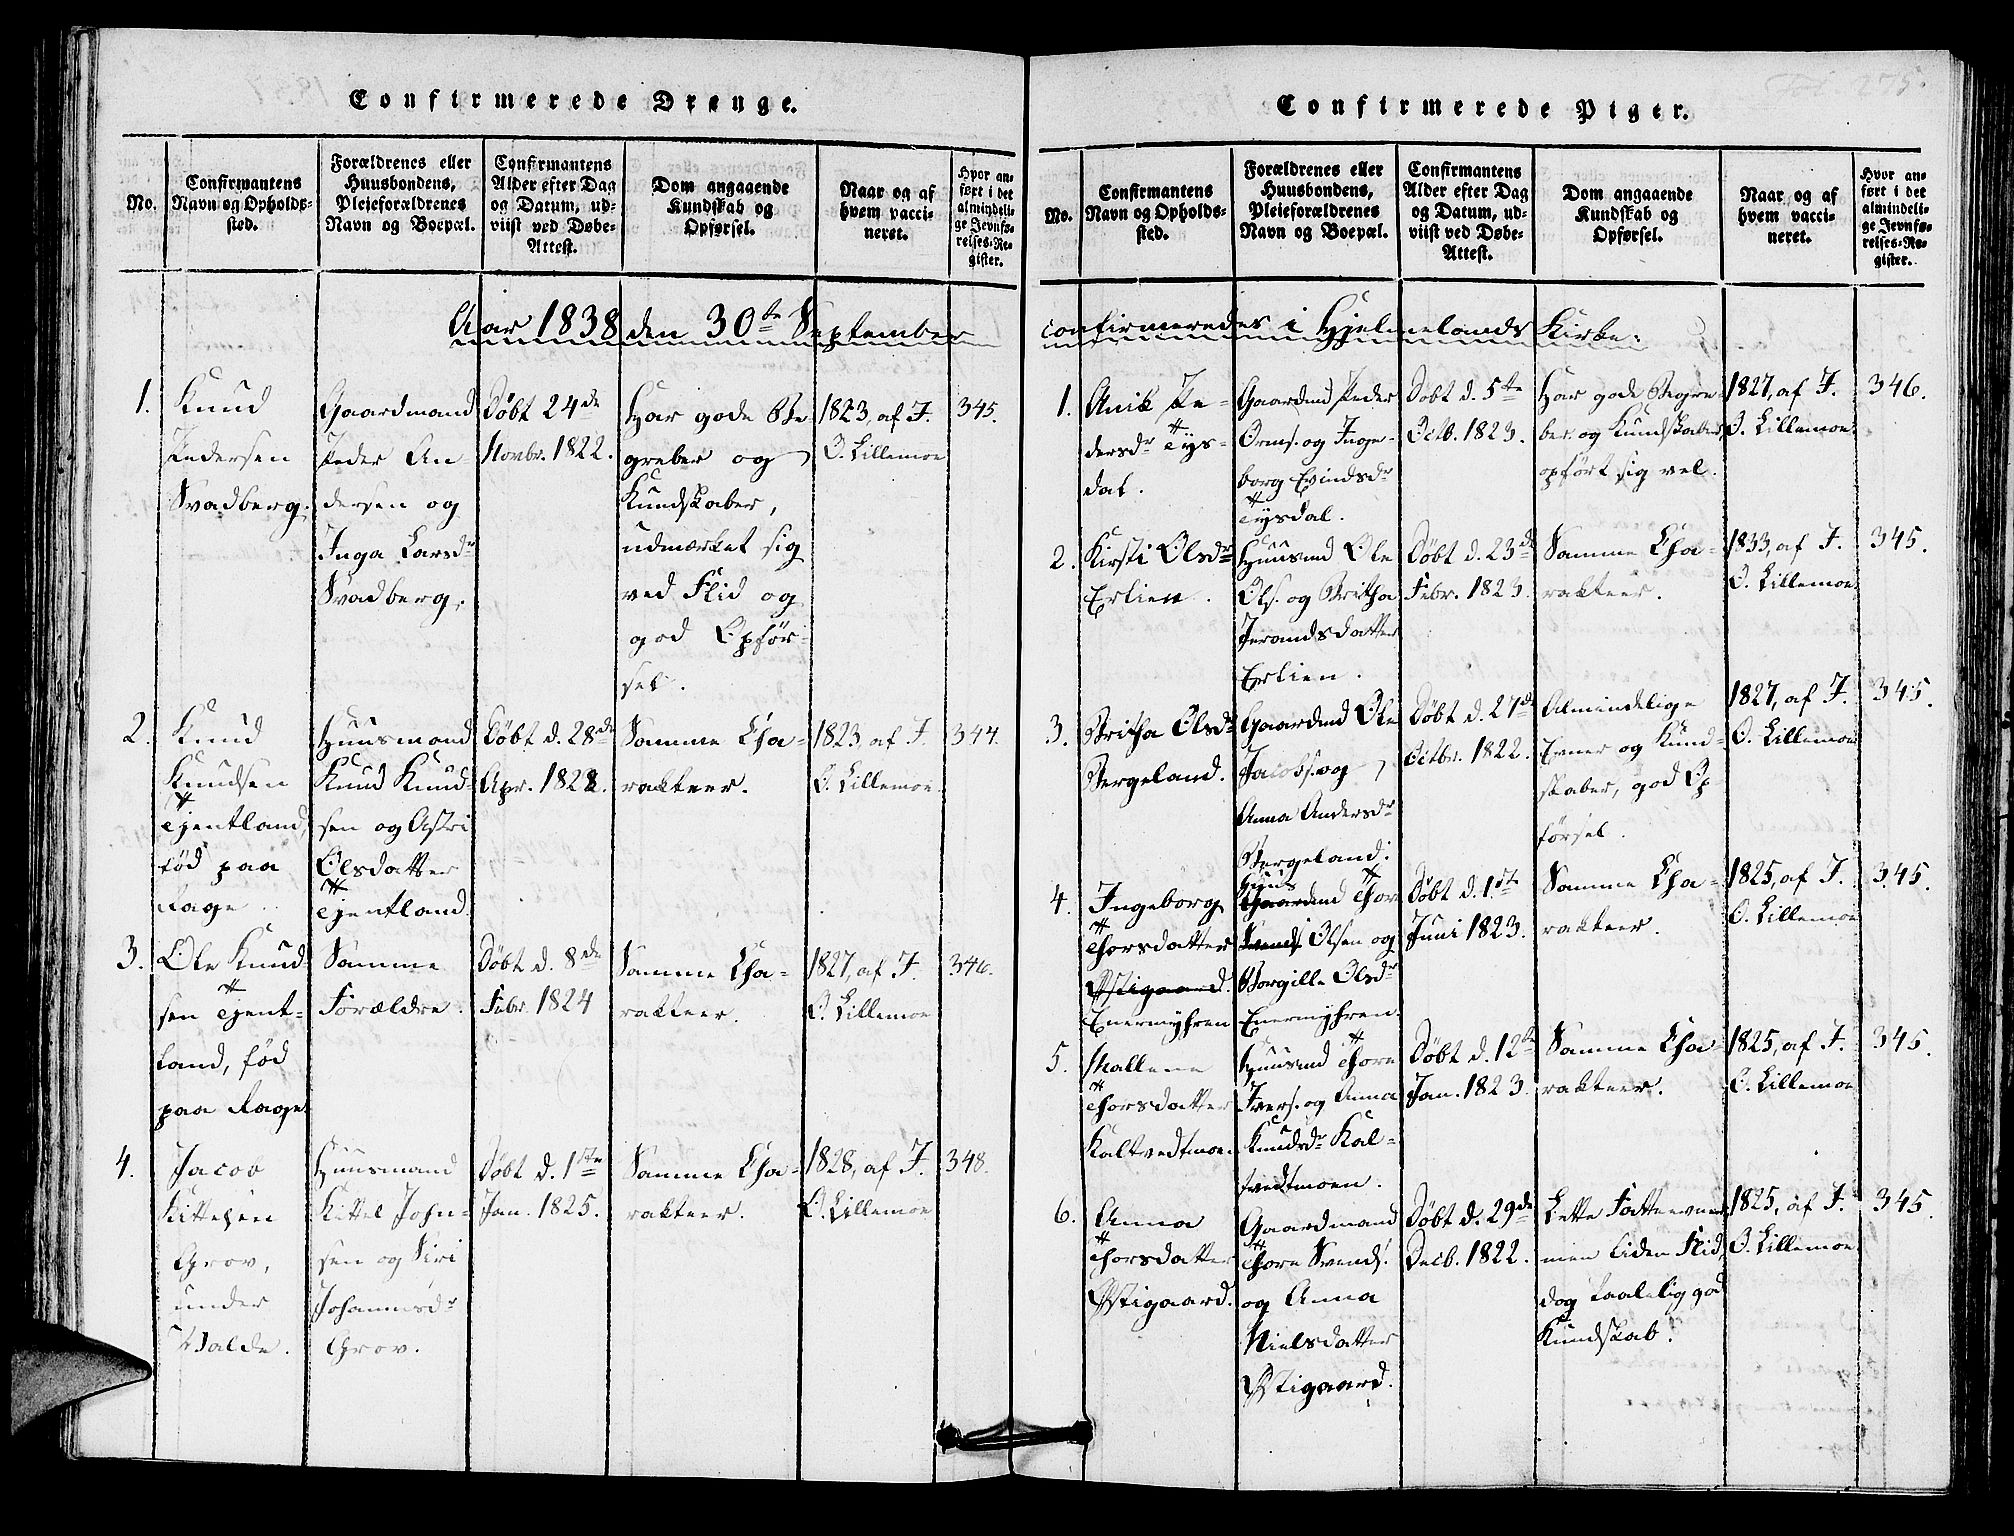 Confirmerede Drenge.
No.
Confirmantens Navn og Opholdssted.
Forældrenes eller Huusbondens, Pleieforældrenes Navn og Boepæl.
Confirmantens Alder efter Dag og Datum, udviist ved Døbe-Attest.
Dom angaaende Kundskab og Opførsel.
Naar og af hvem vaccineret.
Hvor anført i det almindelige Jevnførelses-Register.
Aar 1838 den 30te September
1.
Knud
Pedersen
Svadberg.
Gaardmand
Peder An-
dersen og
Inga Larsdr
Svadberg.
Døbt 24de
Novbr. 1822.
Har gode Be
greber og
Kundskaber,
udmærket sig
ved Flid og
god Opfør-
sel.
1823, af J.
O. Lillemoe
345.
2.
Knud
Knudsen
Tjentland,
fød paa
Fage.
Huusmand
Knud Knud-
sen og Astri
Olsdatter
Tjentland.
Døbt d. 28de
Apr. 1822.
Samme Cha-
rakteer.
1823, af J.
O. Lillemoe.
344.
3.
Ole Knud-
sen Tjent-
land, fød
paa Fage.
Samme
Forældre.
Døbt d. 8de
Febr. 1824
Samme Cha-
rakteer.
1827, af J.
O. Lillemoe
346.
4.
Jacob
Kittelsen
Grov,
under
Valde.
Huusmand
Kittel John-
sen og Siri
Johannisdr
Grov.
Døbt d. 1ste
Jan. 1825.
Samme Cha-
rakteer.
1828, af J.
O. Lillemoe
348.
Fol. 275.
Confirmerede Piger.
No.
Confirmantens Navn og Opholdssted.
Forældrenes eller Huusbondens, Pleieforældrenes Navn og Boepæl.
Confirmantens Alder efter Dag og Datum, udviist ved Døbe-Attest.
Dom angaaende Kundskab og Opførsel.
Naar og af hvem vaccineret.
Hvor anført i det almindelige Jevnførelses-Register.
confirmeredes i Hjelmelands Kirke:
1.
Anik Pe-
dersdr Tys-
dal.
Gaardmd Peder
Orms. og Inge-
borg Evindsdr
Tysdal.
Døbt d. 5te
Octb. 1823.
Har gode Begre-
ber og Kundskaber,
opført sig vel.
1827, af J.
O. Lillemoe.
346.
2.
Kirsti Olsdr
Erlien.
Huusmd Ole
Ols. og Britha
Jerandsdatter
Erlien.
Døbt d. 23de
Febr. 1823.
Samme Cha-
rakteer.
1833, af J.
O. Lillemoe.
345.
3.
Britha Olsdr
Bergeland.
Gaardmd Ole
Jacobs. og
Anna Andersdr
Bergeland.
Døbt d. 27de
Octbr. 1822.
Almindelige
Evner og Kund-
skaber, god Op
førsel.
1827, af J.
O. Lillemoe
345.
4.
Ingeborg
Thorsdatter
Østigaard.
Enermyhren
Huus
Gaardmd Thor
Svends Olsen og
Borgille Olsdr
Enermyhren.
Døbt d. 1ste
Juni 1823.
Samme Cha-
rakteer.
1825, af J.
O. Lillemoe
345.
5.
Mallene
Thorsdatter
Kaltvedtmoe.
Huusmd Thore
Ivers. og Anna
Knudsdr Kal-
tvedtmoen.
Døbt d. 12te
Jan. 1823.
Samme Cha-
rakteer.
1825, af J.
O. Lillemoe
345.
6.
Anna
Thorsdatter
Østigaard.
Gaardmand
Thore Svends.
og Anna
Nielsdatter
Østigaard.
Døbt d. 29de
Decb. 1822.
Lette Fatteevner,
men liden Flid,
dog taalelig god
Kundskab.
1825, af J.
O. Lillemoe
345.